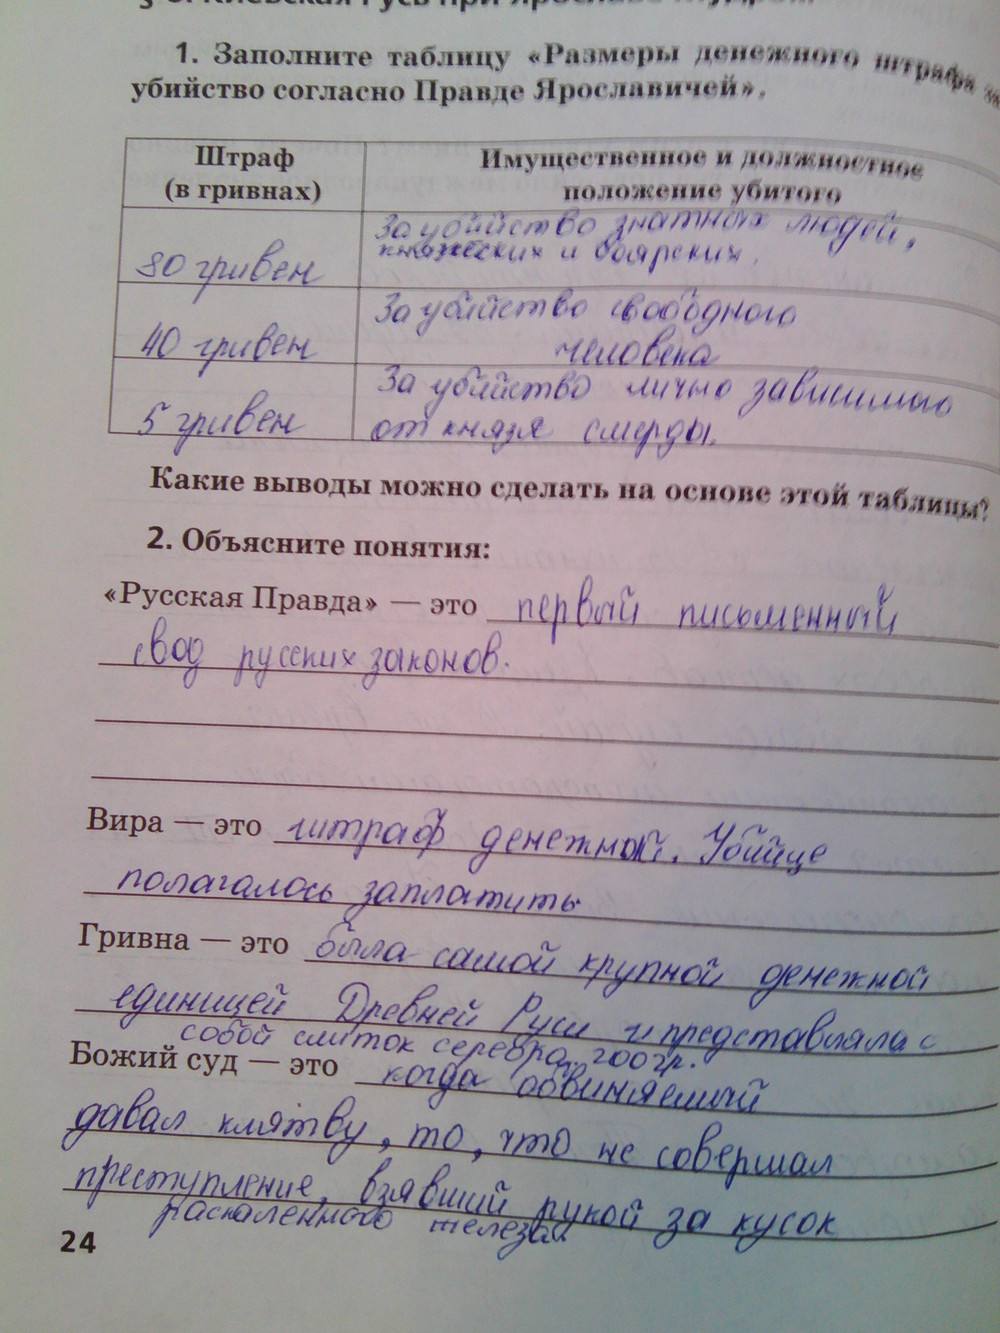 § 6. Киевская Русь при Ярославе Мудром
1. Заполните таблицу «Размеры денежного штрафа за
убийство согласно Правде Ярославичей».
Штраф
(в гривнах)
Имущественное и должностное
положение убитого
80 гривен
За убийство знатных людей,
княжеских и боярских.
40 гривен
За убийство свободного
человека
5 гривен
За убийство лично зависимого
от князя смерды.
Какие выводы можно сделать на основе этой таблицы?
2. Объясните понятия:
«Русская Правда» — это первый письменный
свод русских законов.
Вира — это штраф денежной. Убийце
полагалось заплатить
Гривна — это была самой крупной денежной
единицей Древней Руси и представляла с
собой слиток серебра, 200гр.
Божий суд — это когда обвиняемый
давал клятву, то, что не совершал
преступление, взявший рукой за кусок
раскаленного железа
24